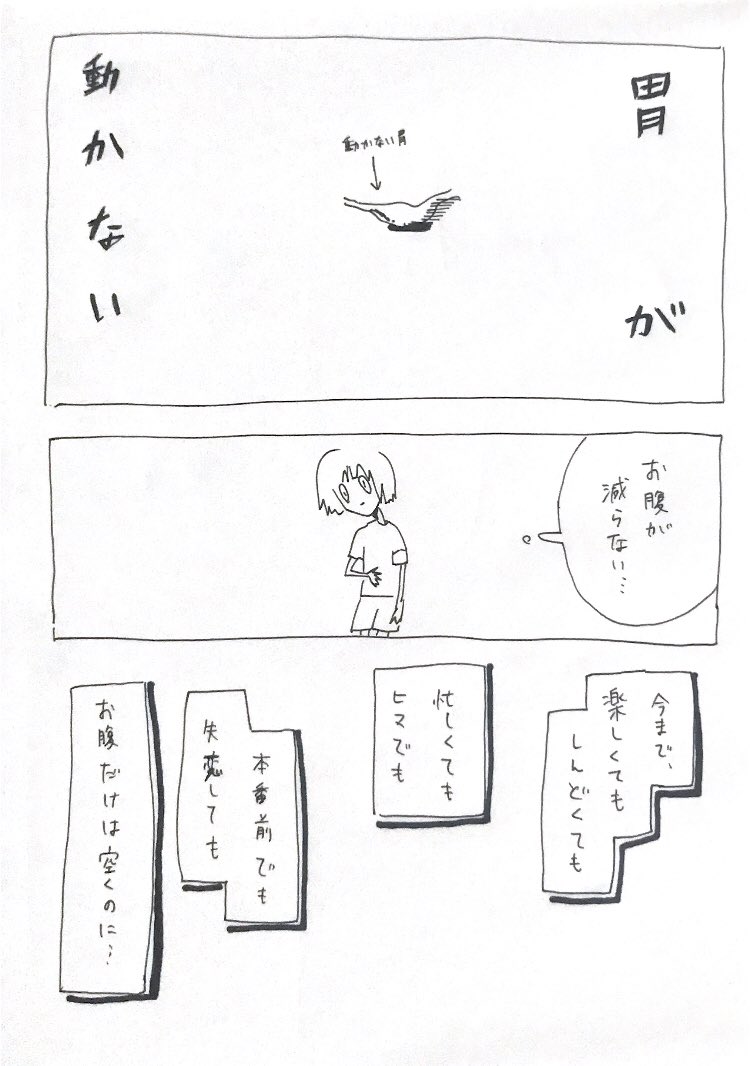 胃が
動かない
動かない胃
お腹が
減らない…
今まで、
楽しくても
しんどくても
忙しくても
ヒマでも
本番前でも
失恋しても
お腹だけは空くのに…